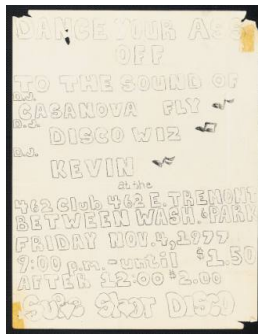 DANCE YOUR ASS
OFF
TO THE SOUND OF
D.J.
CASANOVA FLY
D.J.
DISCO WIZ
D.J.
KEVIN
at the
462 Club 462 E. TREMONT
BETWEEN WASH. & PARK
FRIDAY NOV. 4, 1977
9:00 p.m. - until $1.50
AFTER 12:00 $2.00
DISCO